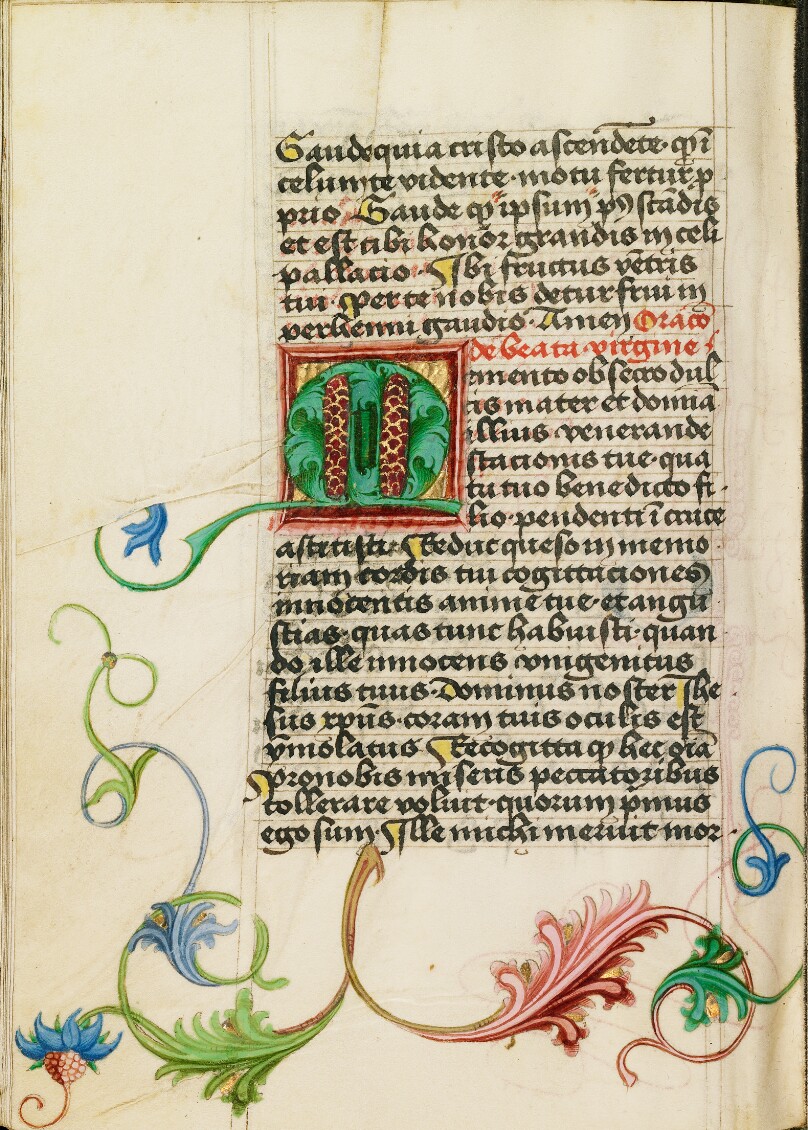 Gaude quia cristo ascendēte · qꝫ ī
celum te vidente · motu fertur ꝓ
prio Gaude qꝫ ip̄sum pꝰ scādis
et est tibi honor grandis in celi
pallacio · Ibi fructus vētris
tui · Per te nobis detur frui in
perhenni gaudio · Amen Oracō
de beata · virgine ·
Memento obsecro dul
cis mater et domīa
illius venerande
stacionis tue · qua
tu tuo benedicto fi
lio · pendenti ī cruce
astitisti · Reduc queso in memo
riam cordis tui cogittaciones
innocentis anime tue · et angu
stias · quas tunc habuisti · quan
do ille innocens vnigenitus
filius tuus · Dominus noster Ihe
sus xp̄us · coram tuis oculis est
ymolatus Recogitta qꝫ hec oīa
pro nobis miseris peccatoribus
tollerare voluit · quorum p̄mus
ego sum · Ille michi meruit mor ·